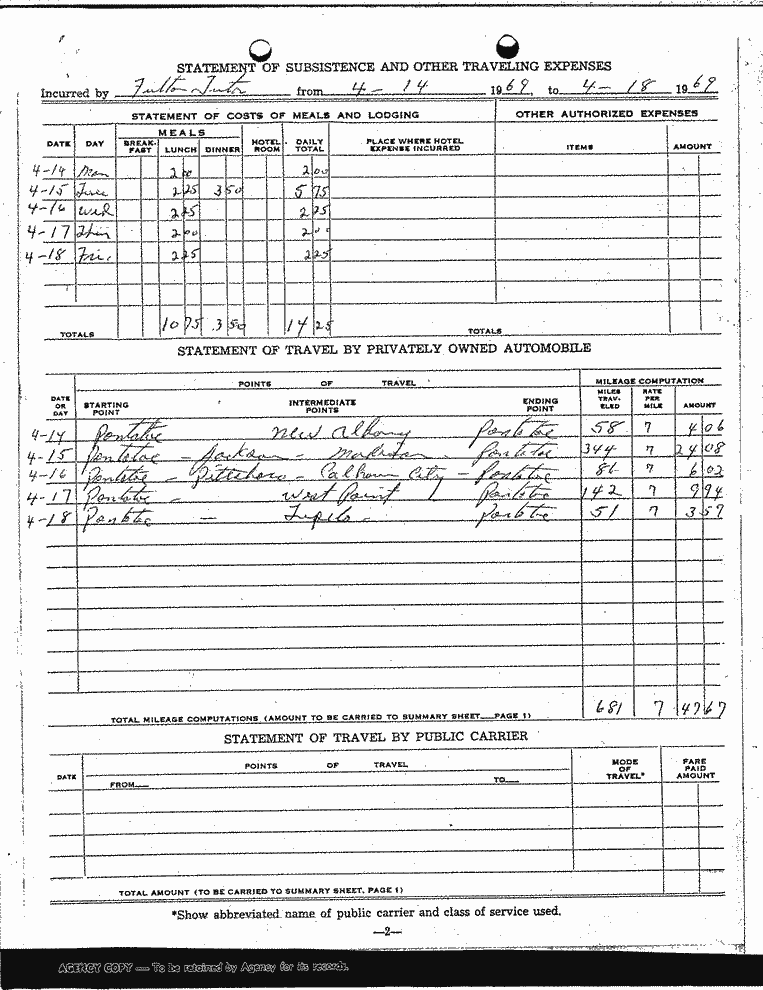 STATEMENT OF SUBSISTENCE AND OTHER TRAVELING EXPENSES
Incurred by Fulton Tutor from 4-14 1969, to 4-18 1969
STATEMENT OF COSTS OF MEALS AND LODGING OTHER AUTHORIZED EXPENSES
DATE DAY MEALS BREAK-FAST LUNCH DINNER HOTEL ROOM DAILY TOTAL PLACE WHERE HOTEL EXPENSE INCURRED ITEMS AMOUNT
4-14 Mon 2 00 2 00
4-15 Tues 2 25 3 50 5 75
4-16 Wed 2 25 2 25
4-17 Thur 2 00 2 00
4-18 Fri. 2 25 2 25
TOTALS 10 75 3 50 14 25 TOTALS
STATEMENT OF TRAVEL BY PRIVATELY OWNED AUTOMOBILE
POINTS OF TRAVEL MILEAGE COMPUTATION
DATE OR DAY STARTING POINT INTERMEDIATE POINTS ENDING POINT MILES TRAV-ELED RATE PER MILE AMOUNT
4-14 Pontotoc New Albany Pontotoc 58 7 4 06
4-15 Pontotoc - Jackson - Madison - Pontotoc 344 7 24 08
4-16 Pontotoc - Pittsboro - Calhoun City - Pontotoc 86 7 6 02
4-17 Pontotoc - West Point Pontotoc 142 7 9 94
4-18 Pontotoc - Tupelo - Pontotoc 51 7 3 57
TOTAL MILEAGE COMPUTATIONS (AMOUNT TO BE CARRIED TO SUMMARY SHEET PAGE 1) 681 7 47 67
STATEMENT OF TRAVEL BY PUBLIC CARRIER
DATE POINTS OF TRAVEL MODE OF TRAVEL* FARE PAID AMOUNT
FROM TO
TOTAL AMOUNT (TO BE CARRIED TO SUMMARY SHEET, PAGE 1)
*Show abbreviated name of public carrier and class of service used.
—2—
AGENCY COPY — To be retained by Agency for its records.